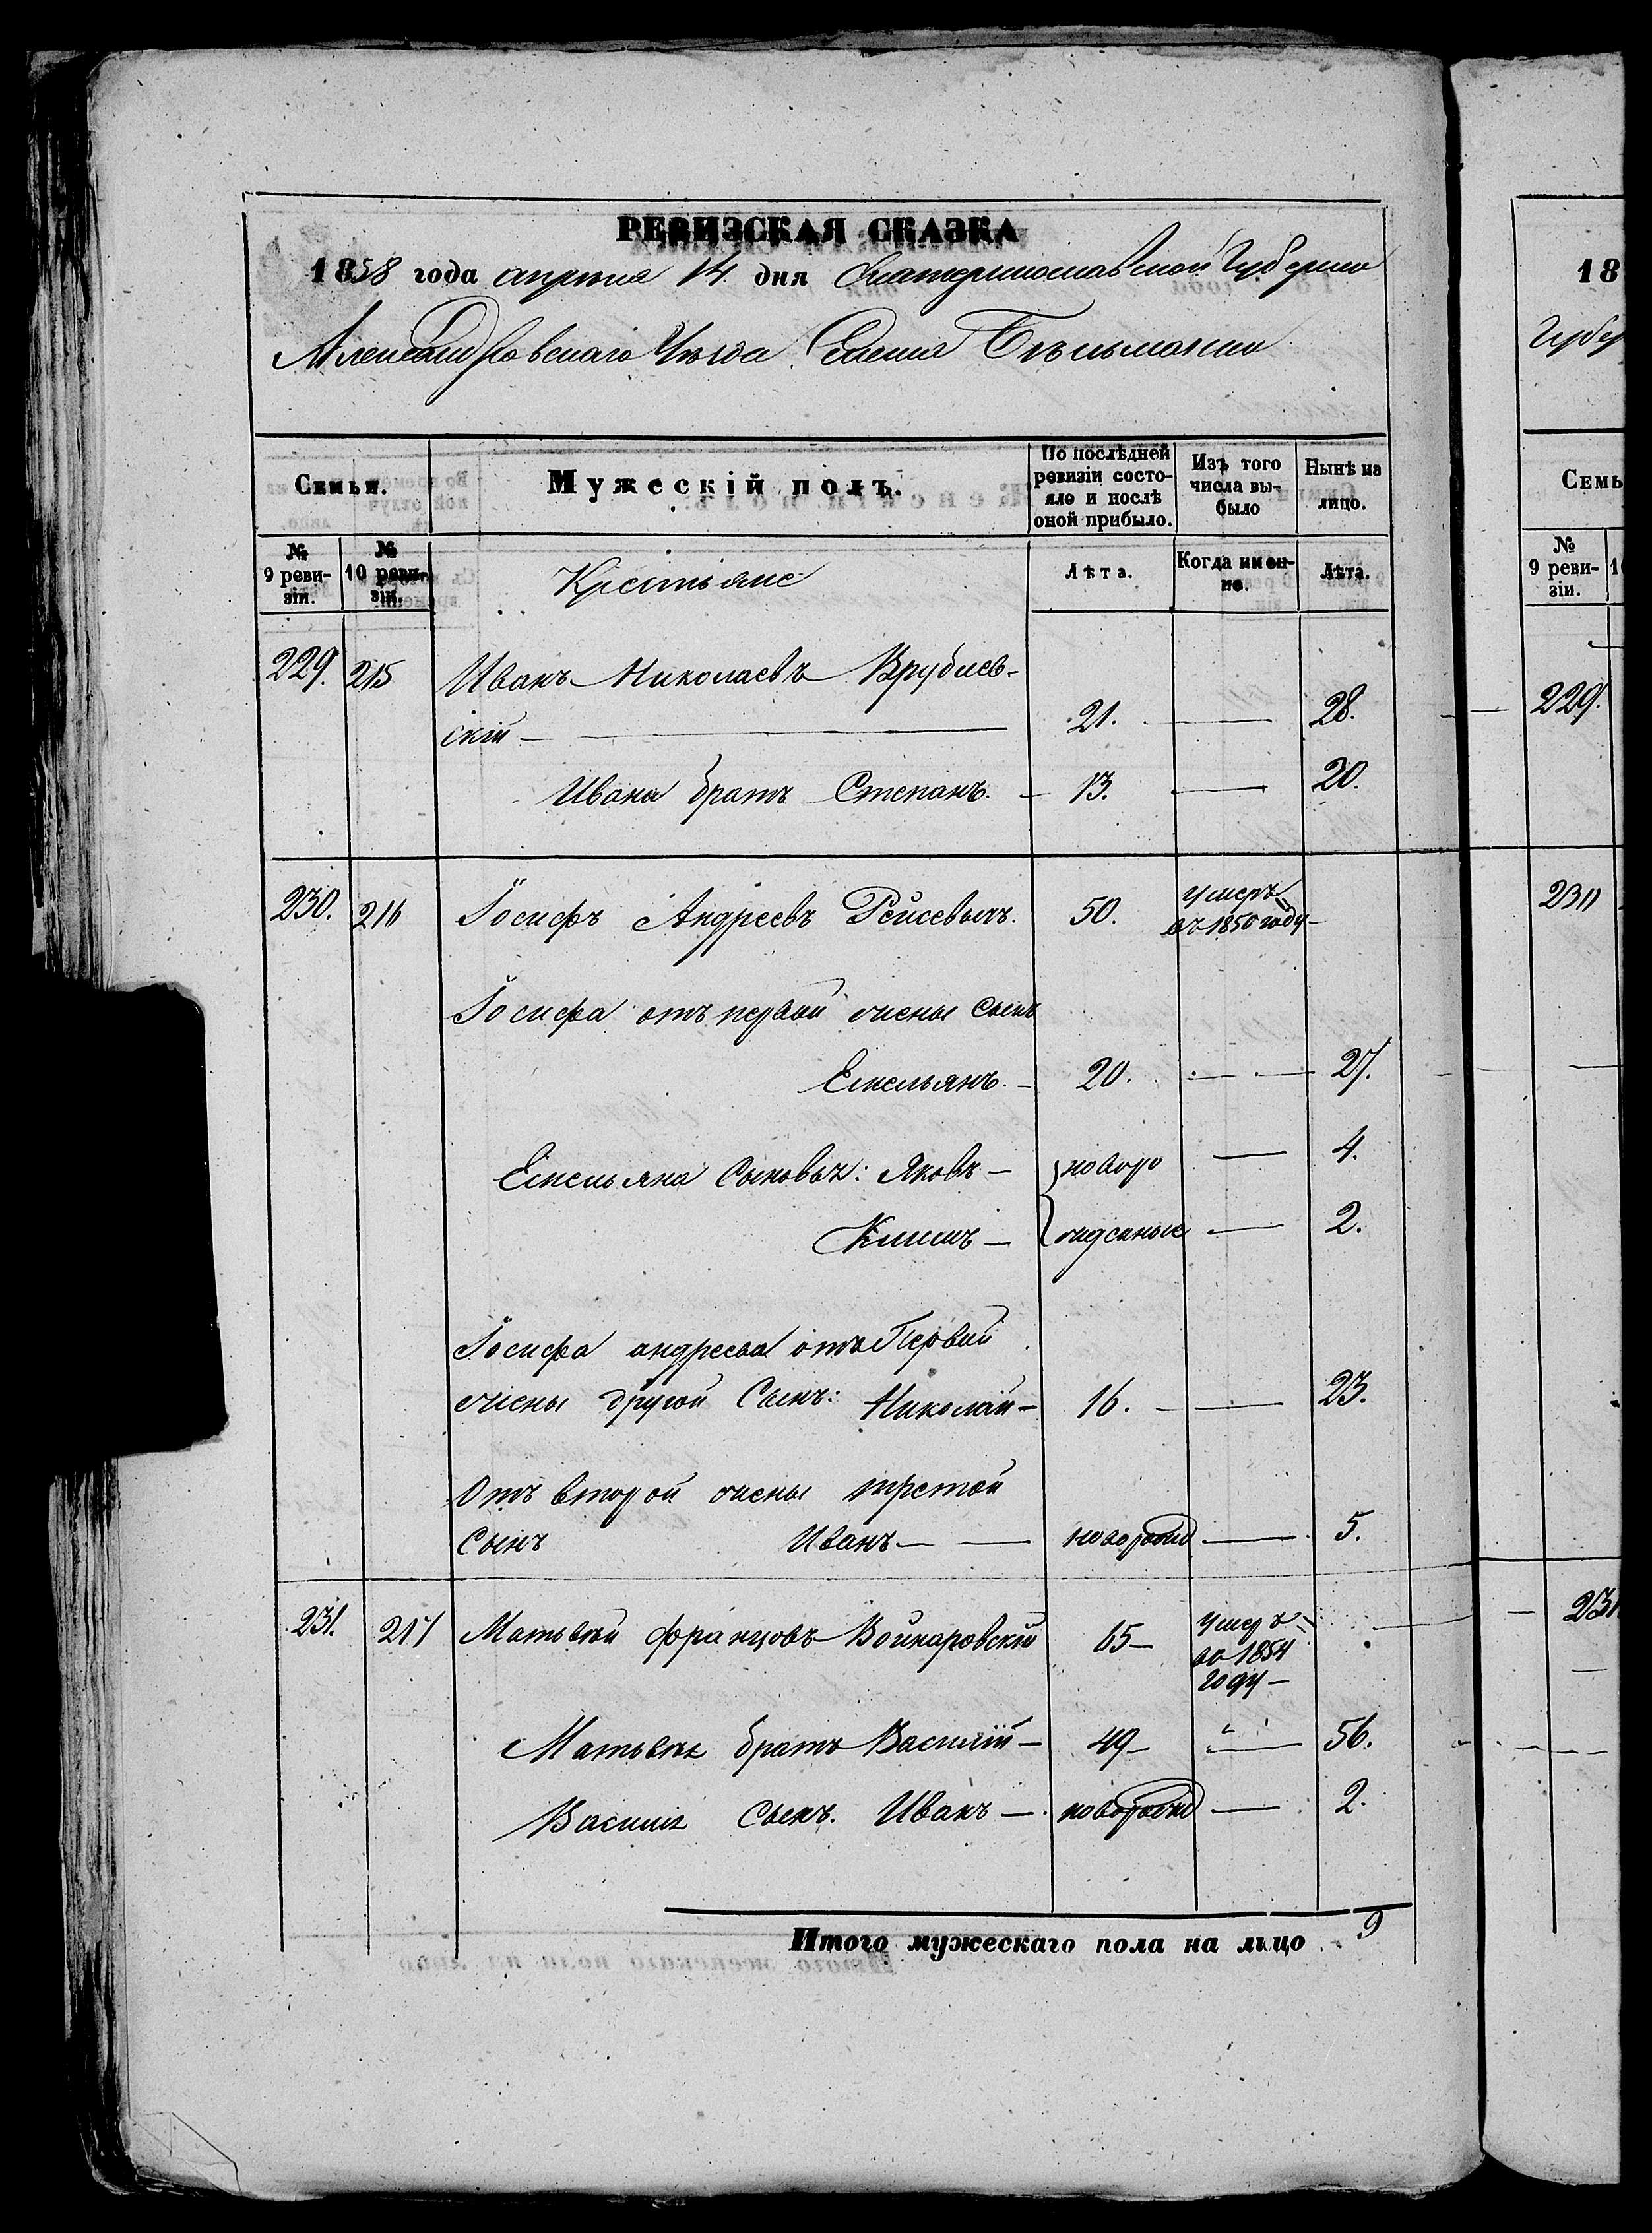 РЕВИЗСКАЯ СКАЗКА
1858 года апреля 14 дня Екатеринославской Губернии
Александровскаго Уѣзда Селенія Бѣльманки
Семьи.
Мужескій полъ.
По послѣдней ревизіи состояло и послѣ оной прибыло.
Изъ того числа выбыло
Нынѣ на лицо.
№ 9 ревизіи.
№ 10 ревизіи.
Крестьяне
Лѣта.
Когда именно.
Лѣта.
229. 215 Иванъ Николаевъ Врублев-
скій — 21. — 28.
Ивана братъ Степанъ. — 13. — 20.
230. 216 Іосифъ Андреевъ 50. умеръ въ 1850 году
Іосифа отъ первой жены сынъ
Емельянъ. — 20. — 27.
Емельяна сыновья: Яковъ — новоро — 4.
Климъ — жденные — 2.
Іосифа андреева отъ Первой
жены другой Сынъ: Николай — 16. — 23.
Отъ второй жены третой
сынъ Иванъ — новорожд — 5.
231. 217 Матвѣй францовъ Войнаровскій 65 — умеръ въ 1854 году —
Матвѣя братъ Василій — 49 — 56.
Василія сынъ. Иванъ — новорожд — 2.
Итого мужескаго пола на лицо 9
18
Губер
Семь
№ 9 ревизіи.
229.
230
231